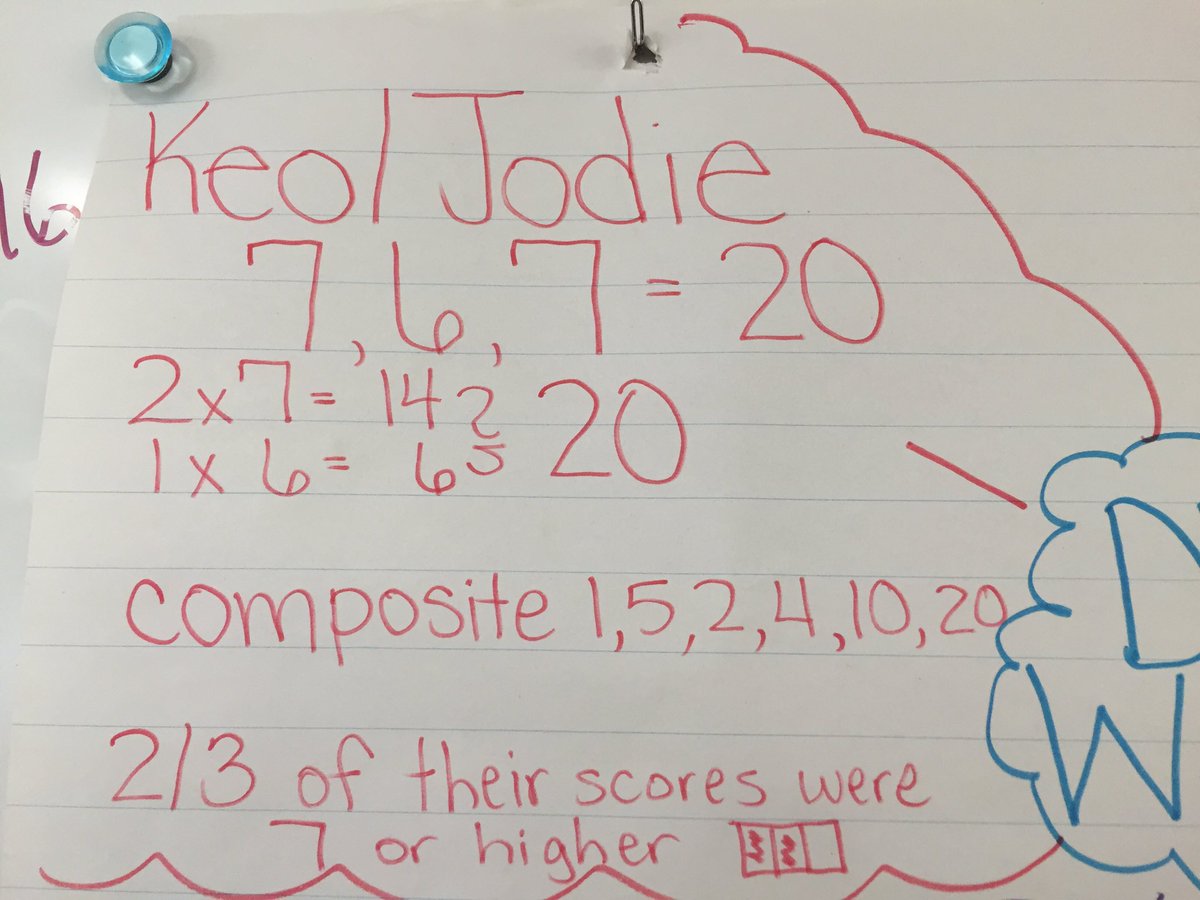 16
Keo/Jodie
7, 6, 7 = 20
2x7= 14
1x6= 6
20
composite 1,5,2,4,10,20
D
W
2/3 of their scores were
7 or higher